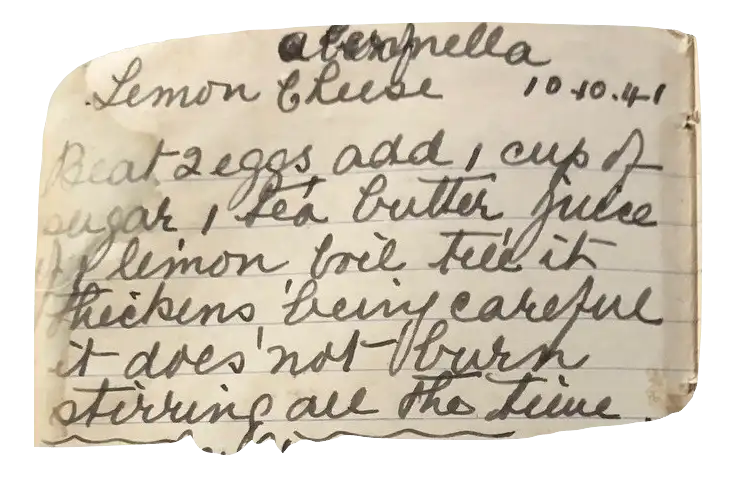 Lemon Cheese 10.10.41
Beat 2 eggs, add 1 cup of
sugar, 1 tea butter, juice
of 1 lemon, boil till it
thickens, being careful
it does not burn
stirring all the time.